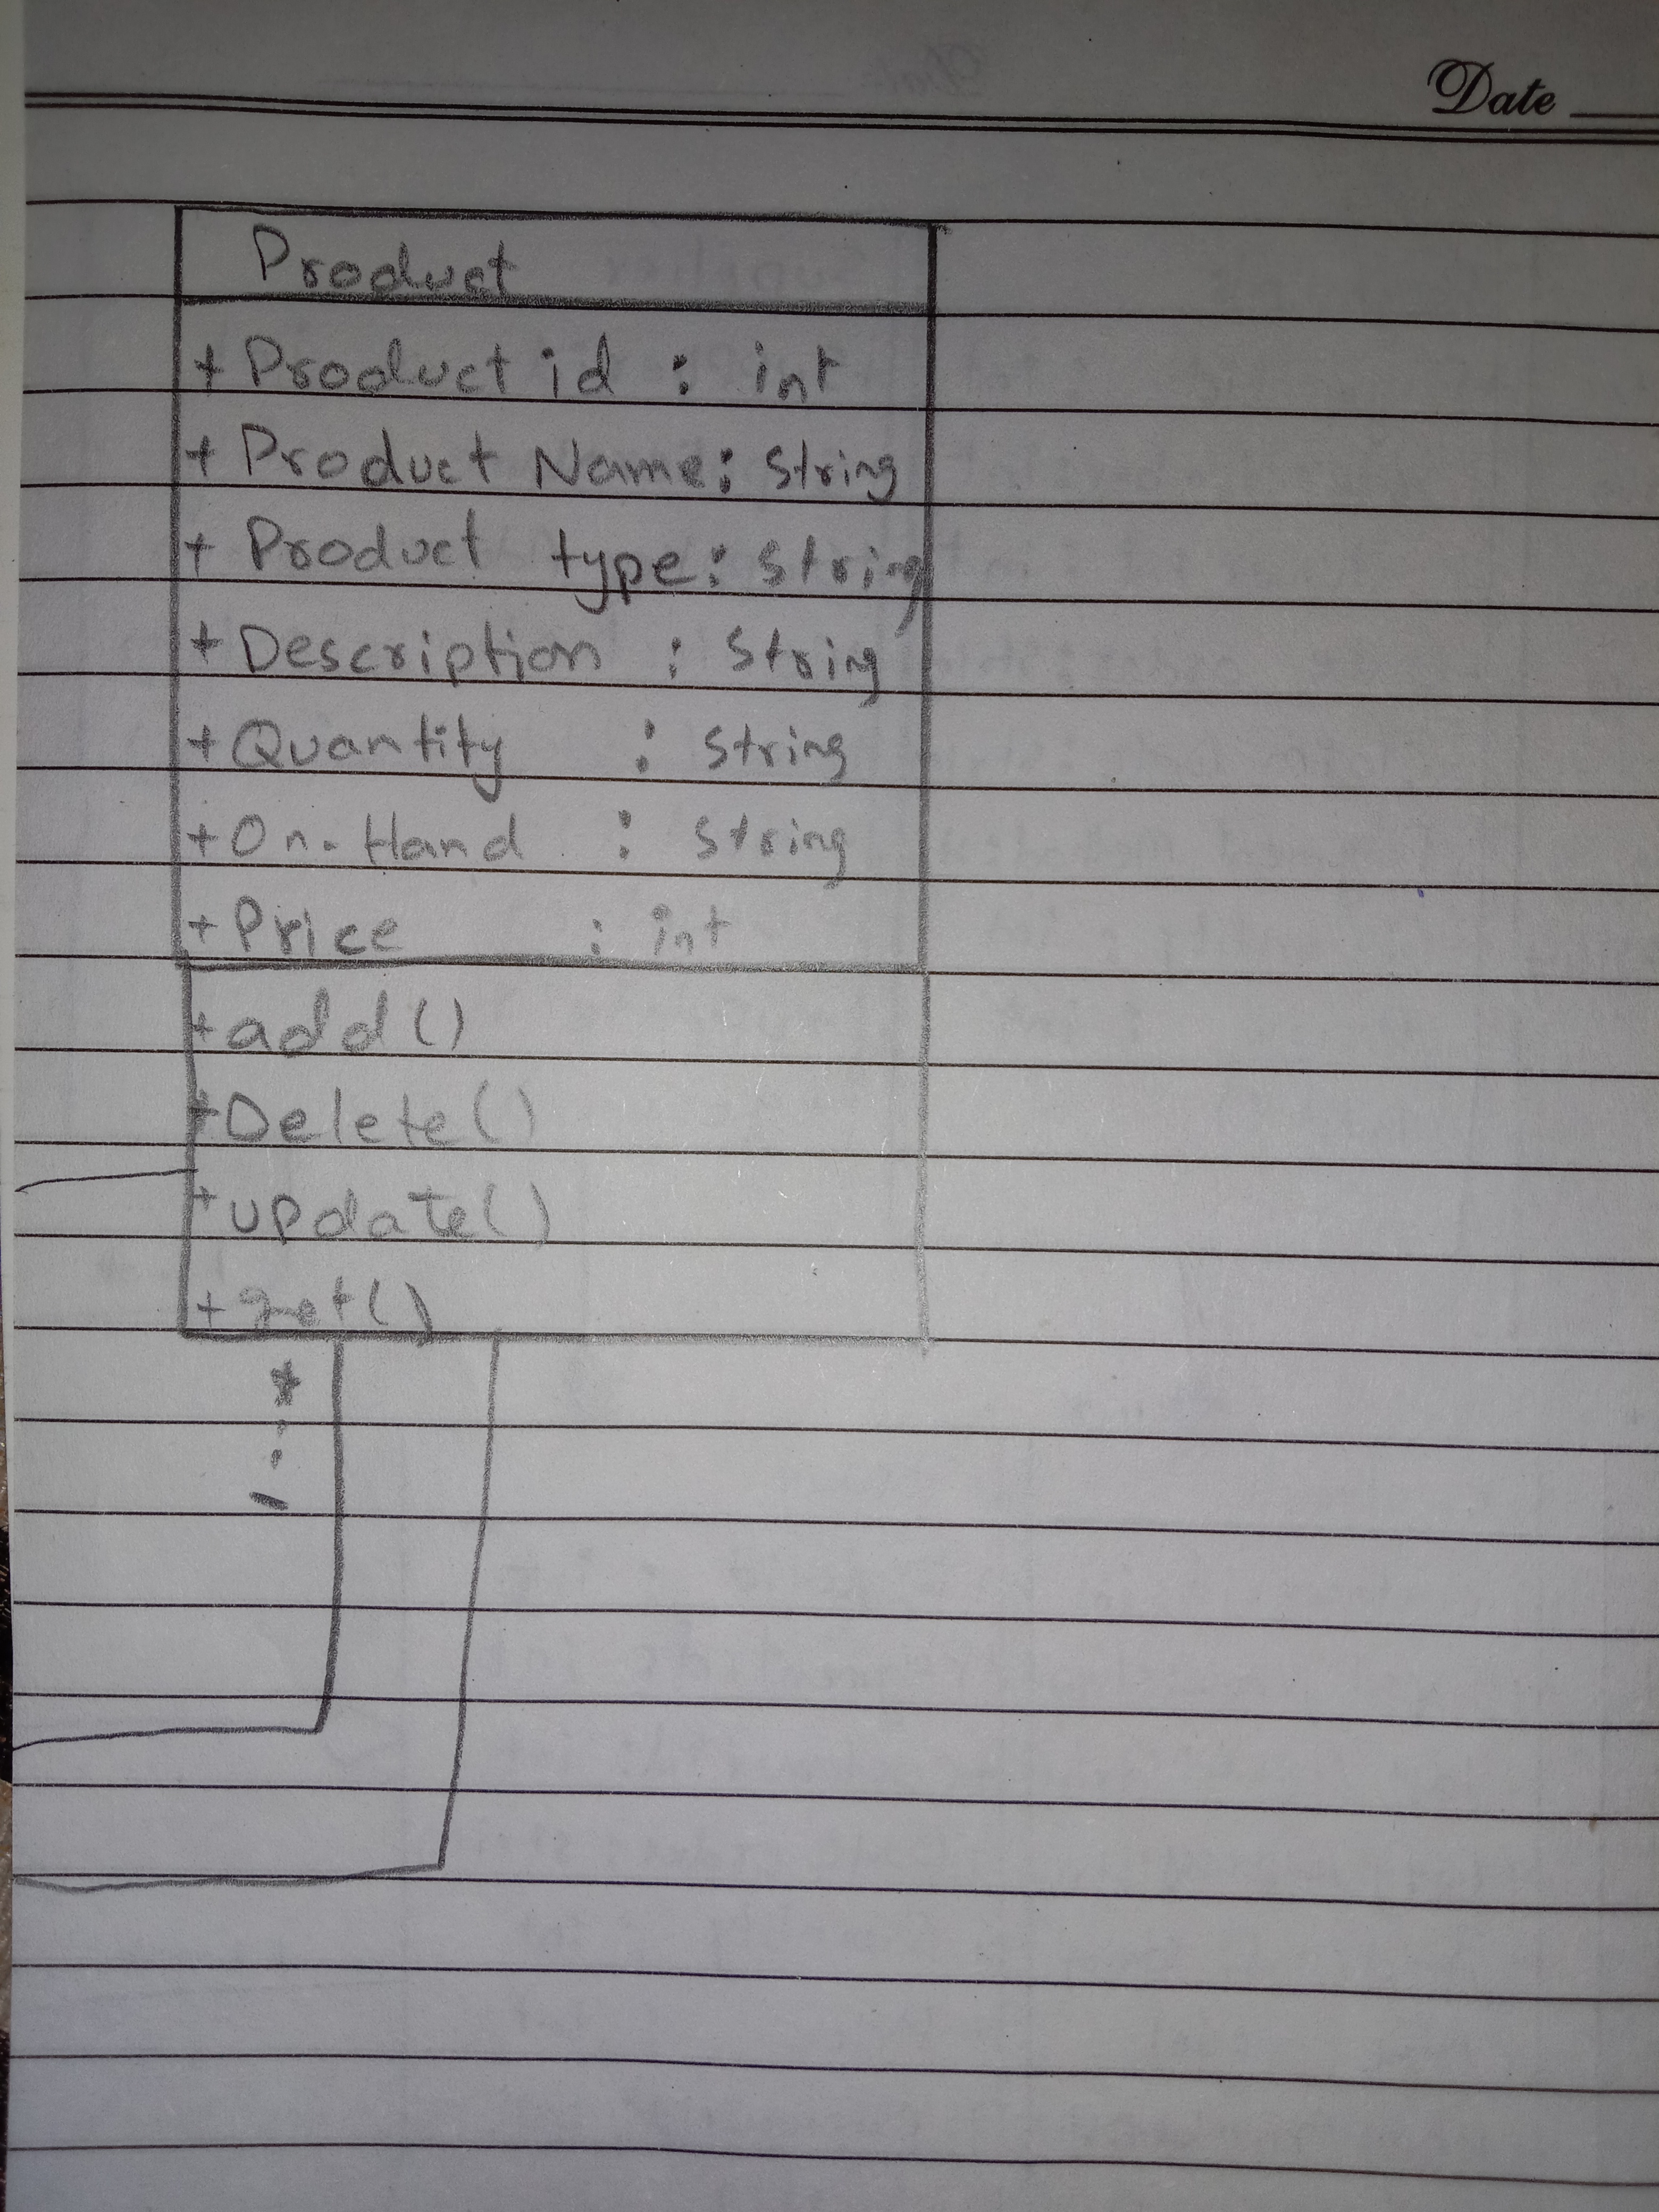 Date
Product
+ Product id : int
+ Product Name : String
+ Product type : String
+ Description : String
+ Quantity : String
+ On-Hand : String
+ Price : int
+ add ()
+ Delete ()
+ update ()
+ get ()
*
:
1